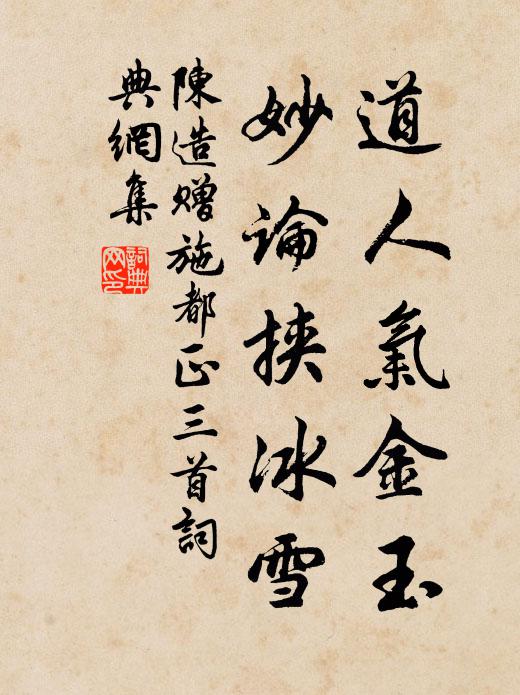 道人氣金玉
妙論挾冰雪
陳造贈施都正三首詞
典網集
詞典
网印